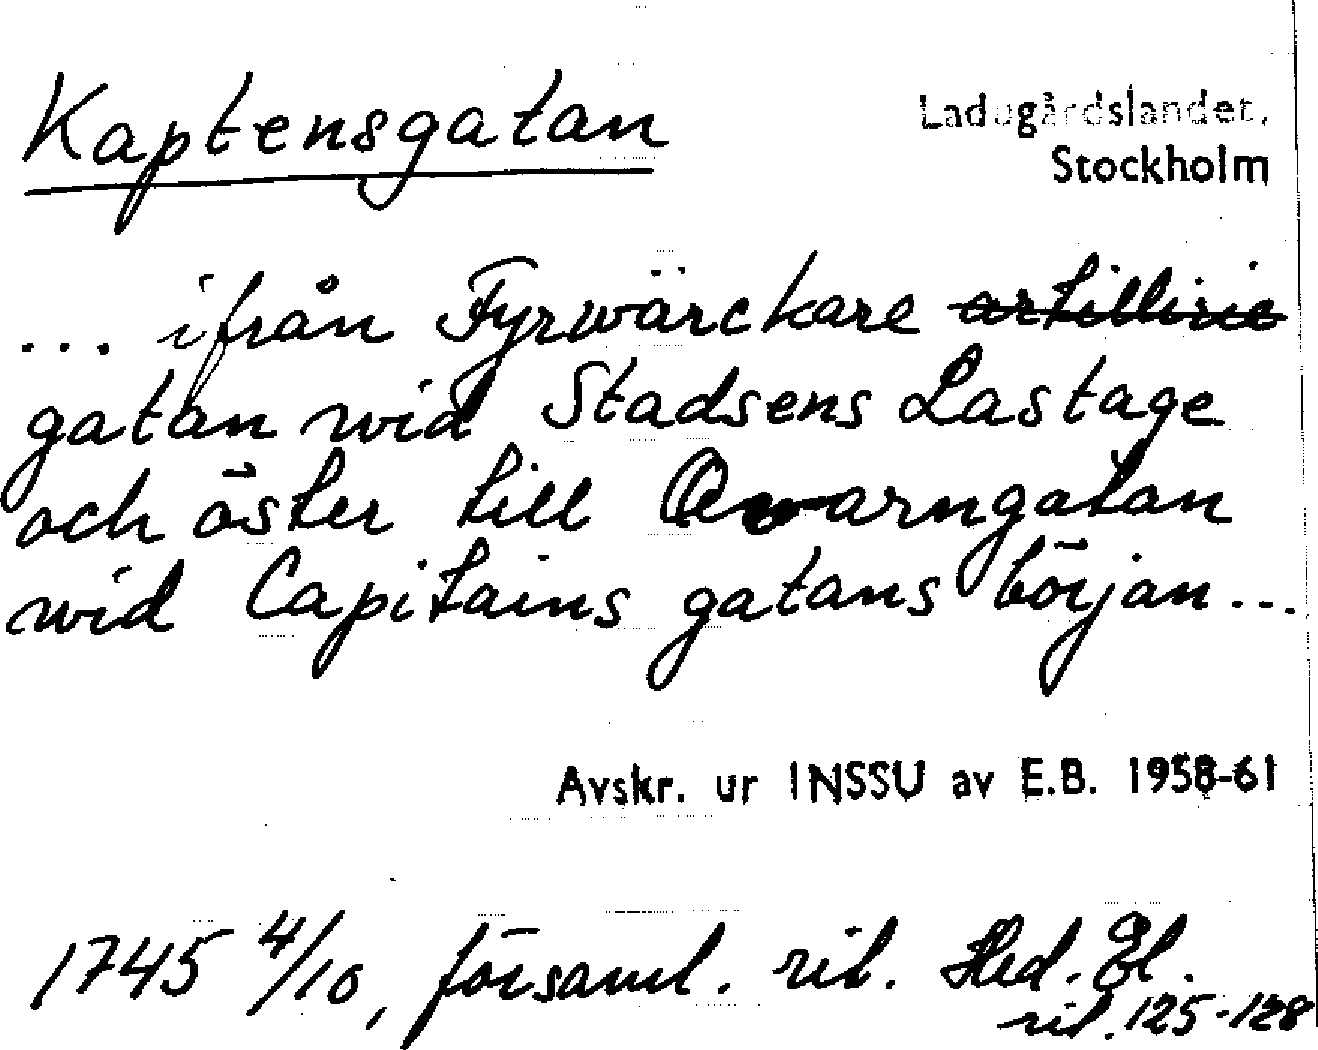 Kaptensgatan
Ladugårdslandet,
Stockholm
... ifrån Fyrwärckare artillirie
gatan wid Stadsens Lastage
och öster till Qwarngatan
wid Capitains gatans början...
Avskr. ur INSSU av E.B. 1958-61
1745 4/10, församl. ril. Hed. El.
ril. 125-128